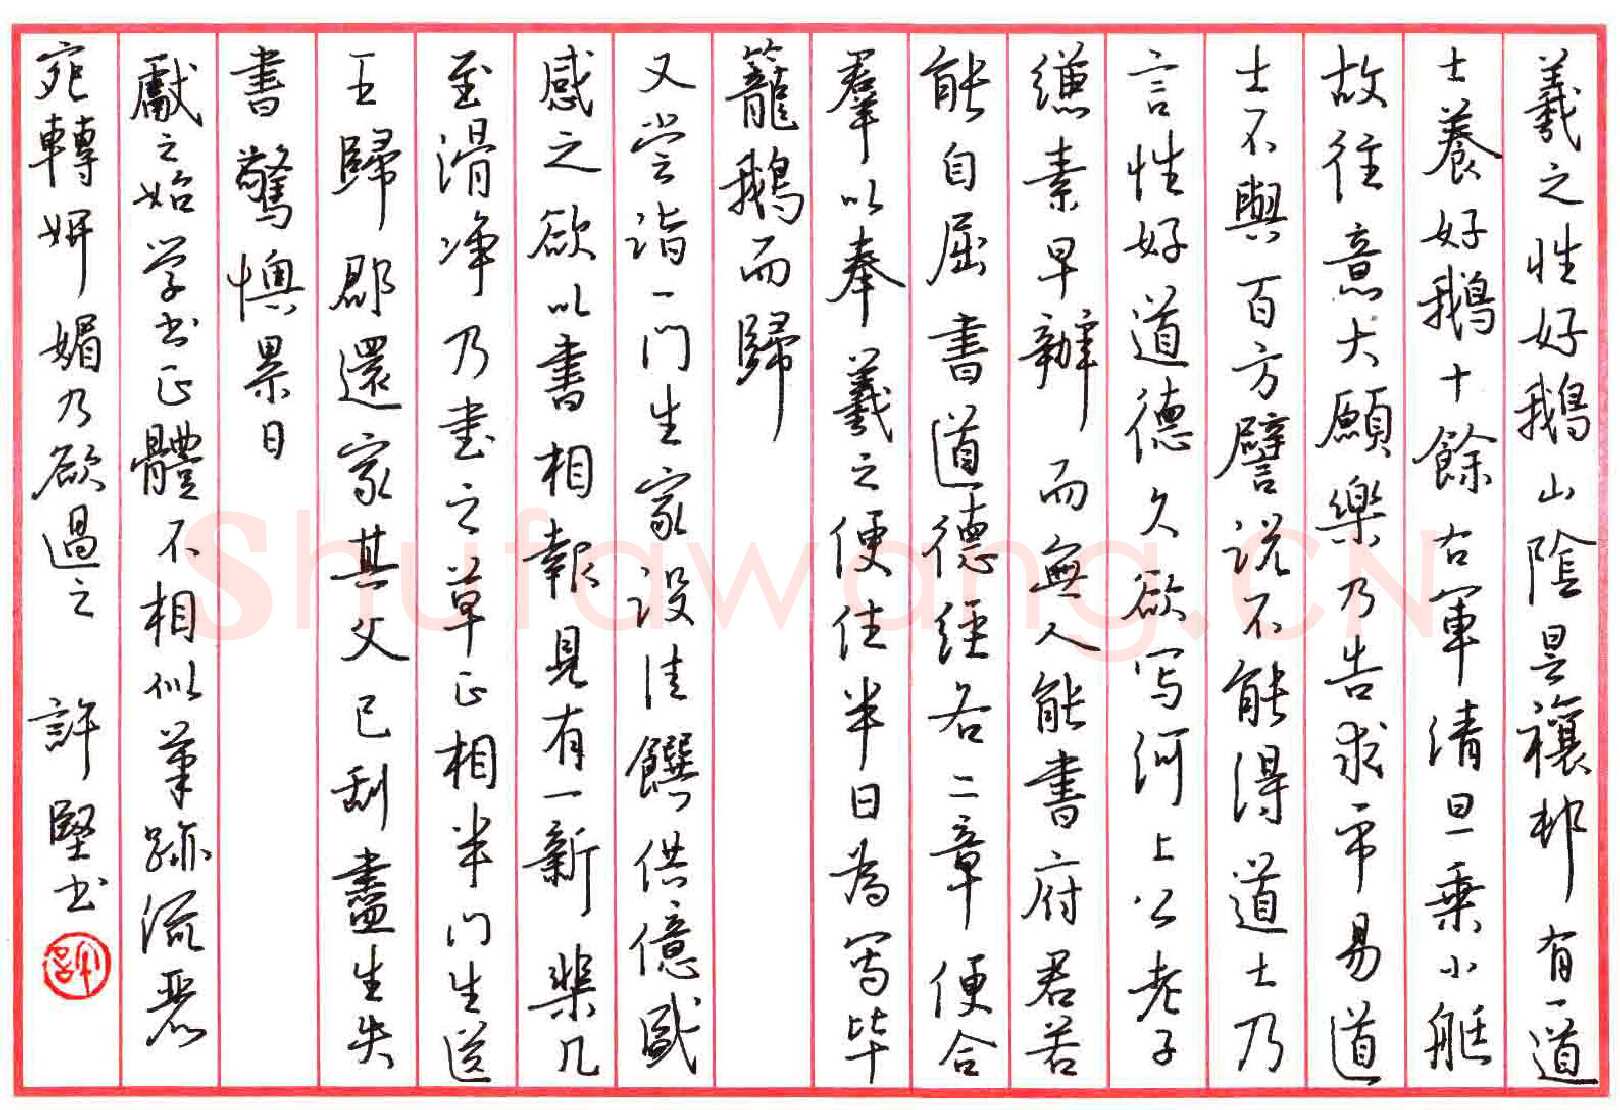 羲之性好鵝山陰曇礹村有一道
士養好鵝十餘右軍清旦乘小艇
故往意大願樂乃告求市易道
士不與百方譬説不能得道士乃
言性好道德久欲写河上公老子
縑素早辦而無人能書府君若
能自屈書道德經各二章便合
羣以奉羲之便住半日為寫毕
籠鵝而歸
又尝诣一门生家设佳饌供億盛
感之欲以書相報見有一新棐几
至滑净乃書之草正相半门生送
王歸郡還家其父已刮盡生失
書驚懊累日
獻之始学书正體不相似筆跡流懌
宛轉妍媚乃欲過之 許堅书
Shufawang.CN